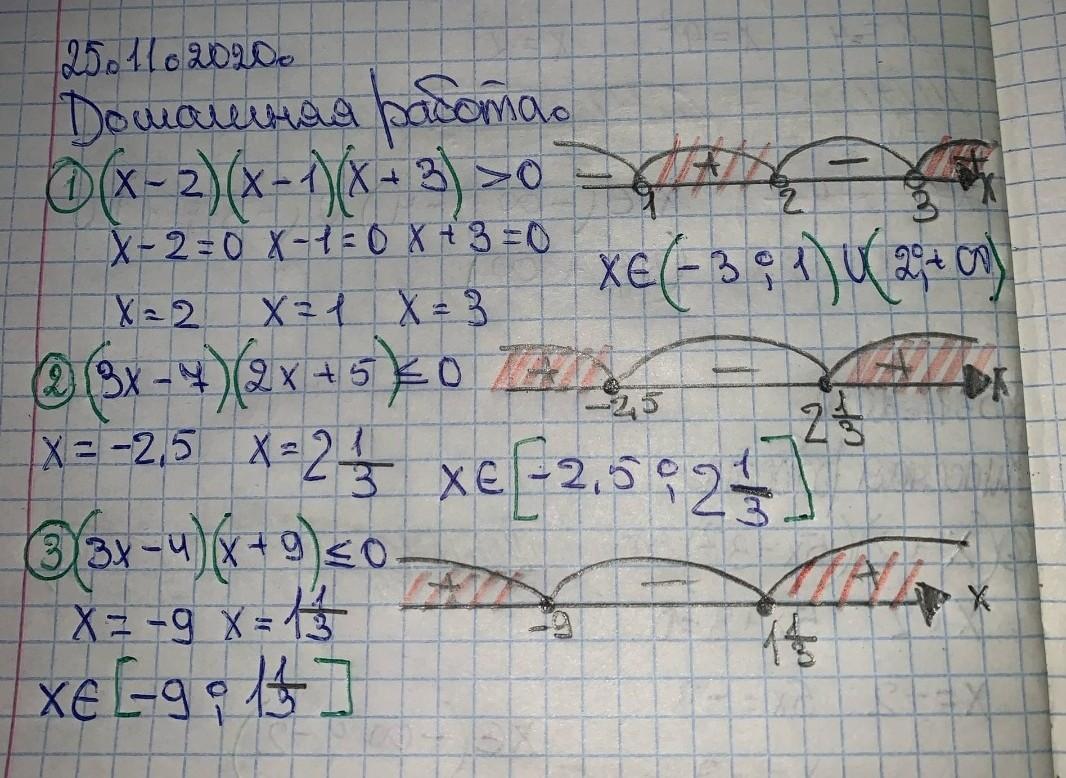 25.11.2020.
Домашняя работа.
① (x-2)(x-1)(x+3)>0
x-2=0 x-1=0 x+3=0
x=2 x=1 x=3
- + - + x
1 2 3
x∈(-3;1)∪(2;+∞)
② (3x-7)(2x+5)≤0
+ - + x
-2,5 2 1/3
x=-2,5 x=2 1/3
x∈[-2,5;2 1/3]
③ (3x-4)(x+9)≤0
+ - + x
-9 1 1/3
x=-9 x=1 1/3
x∈[-9;1 1/3]